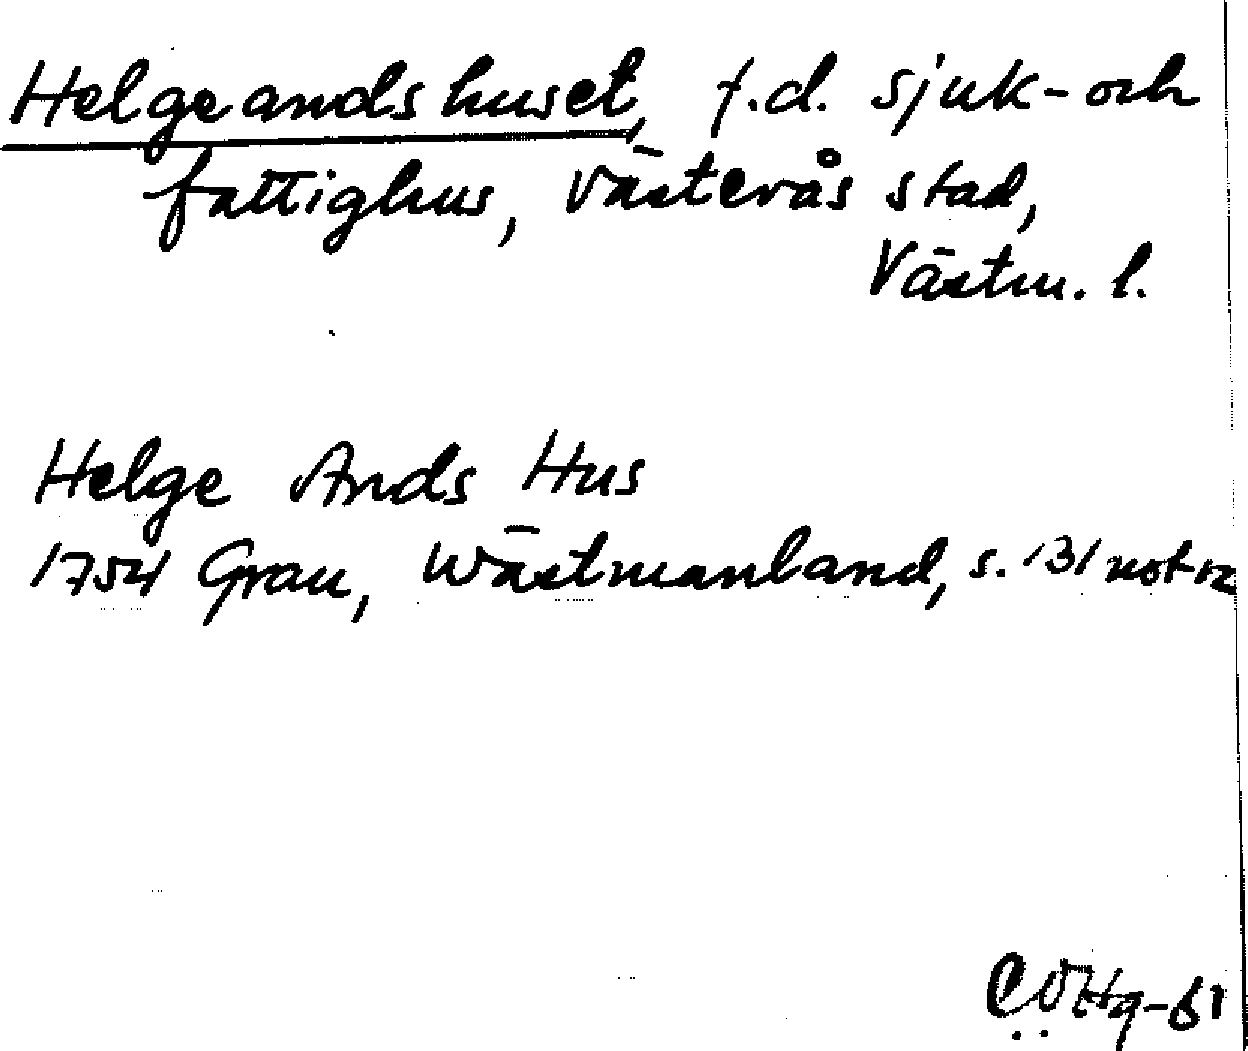 Helgeandshuset, f.d. sjuk- och
fattighus, Västerås stad,
Västm. l.
Helge Ands Hus
1754 Grau, Wästmanland, s. 131 not